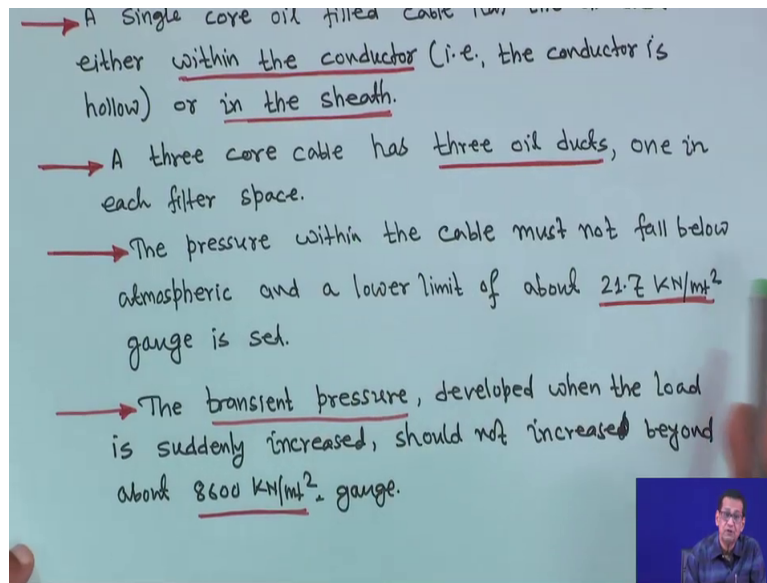 A single core oil filled cable
either within the conductor (i.e., the conductor is
hollow) or in the sheath.
A three core cable has three oil ducts, one in
each filter space.
The pressure within the cable must not fall below
atmospheric and a lower limit of about 21.7 KN/mt²
gauge is set.
The transient pressure, developed when the load
is suddenly increased, should not increased beyond
about 8600 KN/mt². gauge.